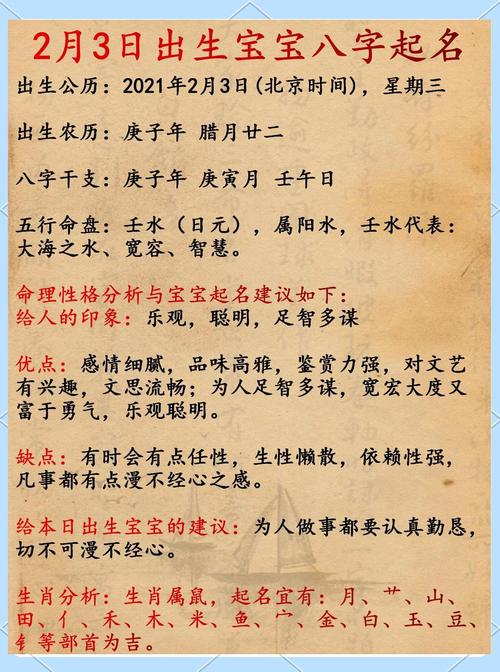 2月3日出生宝宝八字起名
出生公历：2021年2月3日(北京时间)，星期三
出生农历：庚子年 腊月廿二
八字干支：庚子年 庚寅月 壬午日
五行命盘：壬水（日元），属阳水，壬水代表：
大海之水、宽容、智慧。
命理性格分析与宝宝起名建议如下：
给人的印象：乐观，聪明，足智多谋
优点：感情细腻，品味高雅，鉴赏力强，对文艺
有兴趣，文思流畅；为人足智多谋，宽宏大度又
富于勇气，乐观聪明。
缺点：有时会有点任性，生性懒散，依赖性强，
凡事都有点漫不经心之感。
给本日出生宝宝的建议：为人做事都要认真勤恳，
切不可漫不经心。
生肖分析：生肖属鼠，起名宜有：月、艹、山、
田、亻、禾、木、米、鱼、宀、金、白、玉、豆、
钅等部首为吉。